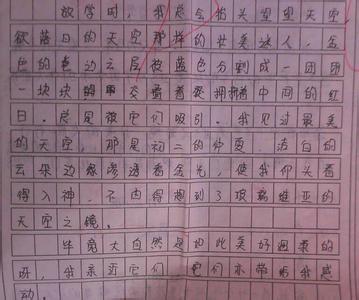 放学时，我总会抬头望望天空，
欲落日的天空那样的壮美迷人，金
色的色动之层被蓝色分割成一团团
一块块的 交叠着 拥拥着中间的红
日。总是被它们吸引。我见过最美
的天空，那是初二的仲夏，洁白的
云朵边缘渗透着金光，使我仰头看
得入神，不由得想到了玻利维亚的
天空之镜。
毕竟大自然是如此美好温柔的
呀，我亲近它们，它们亦带给我感
动。